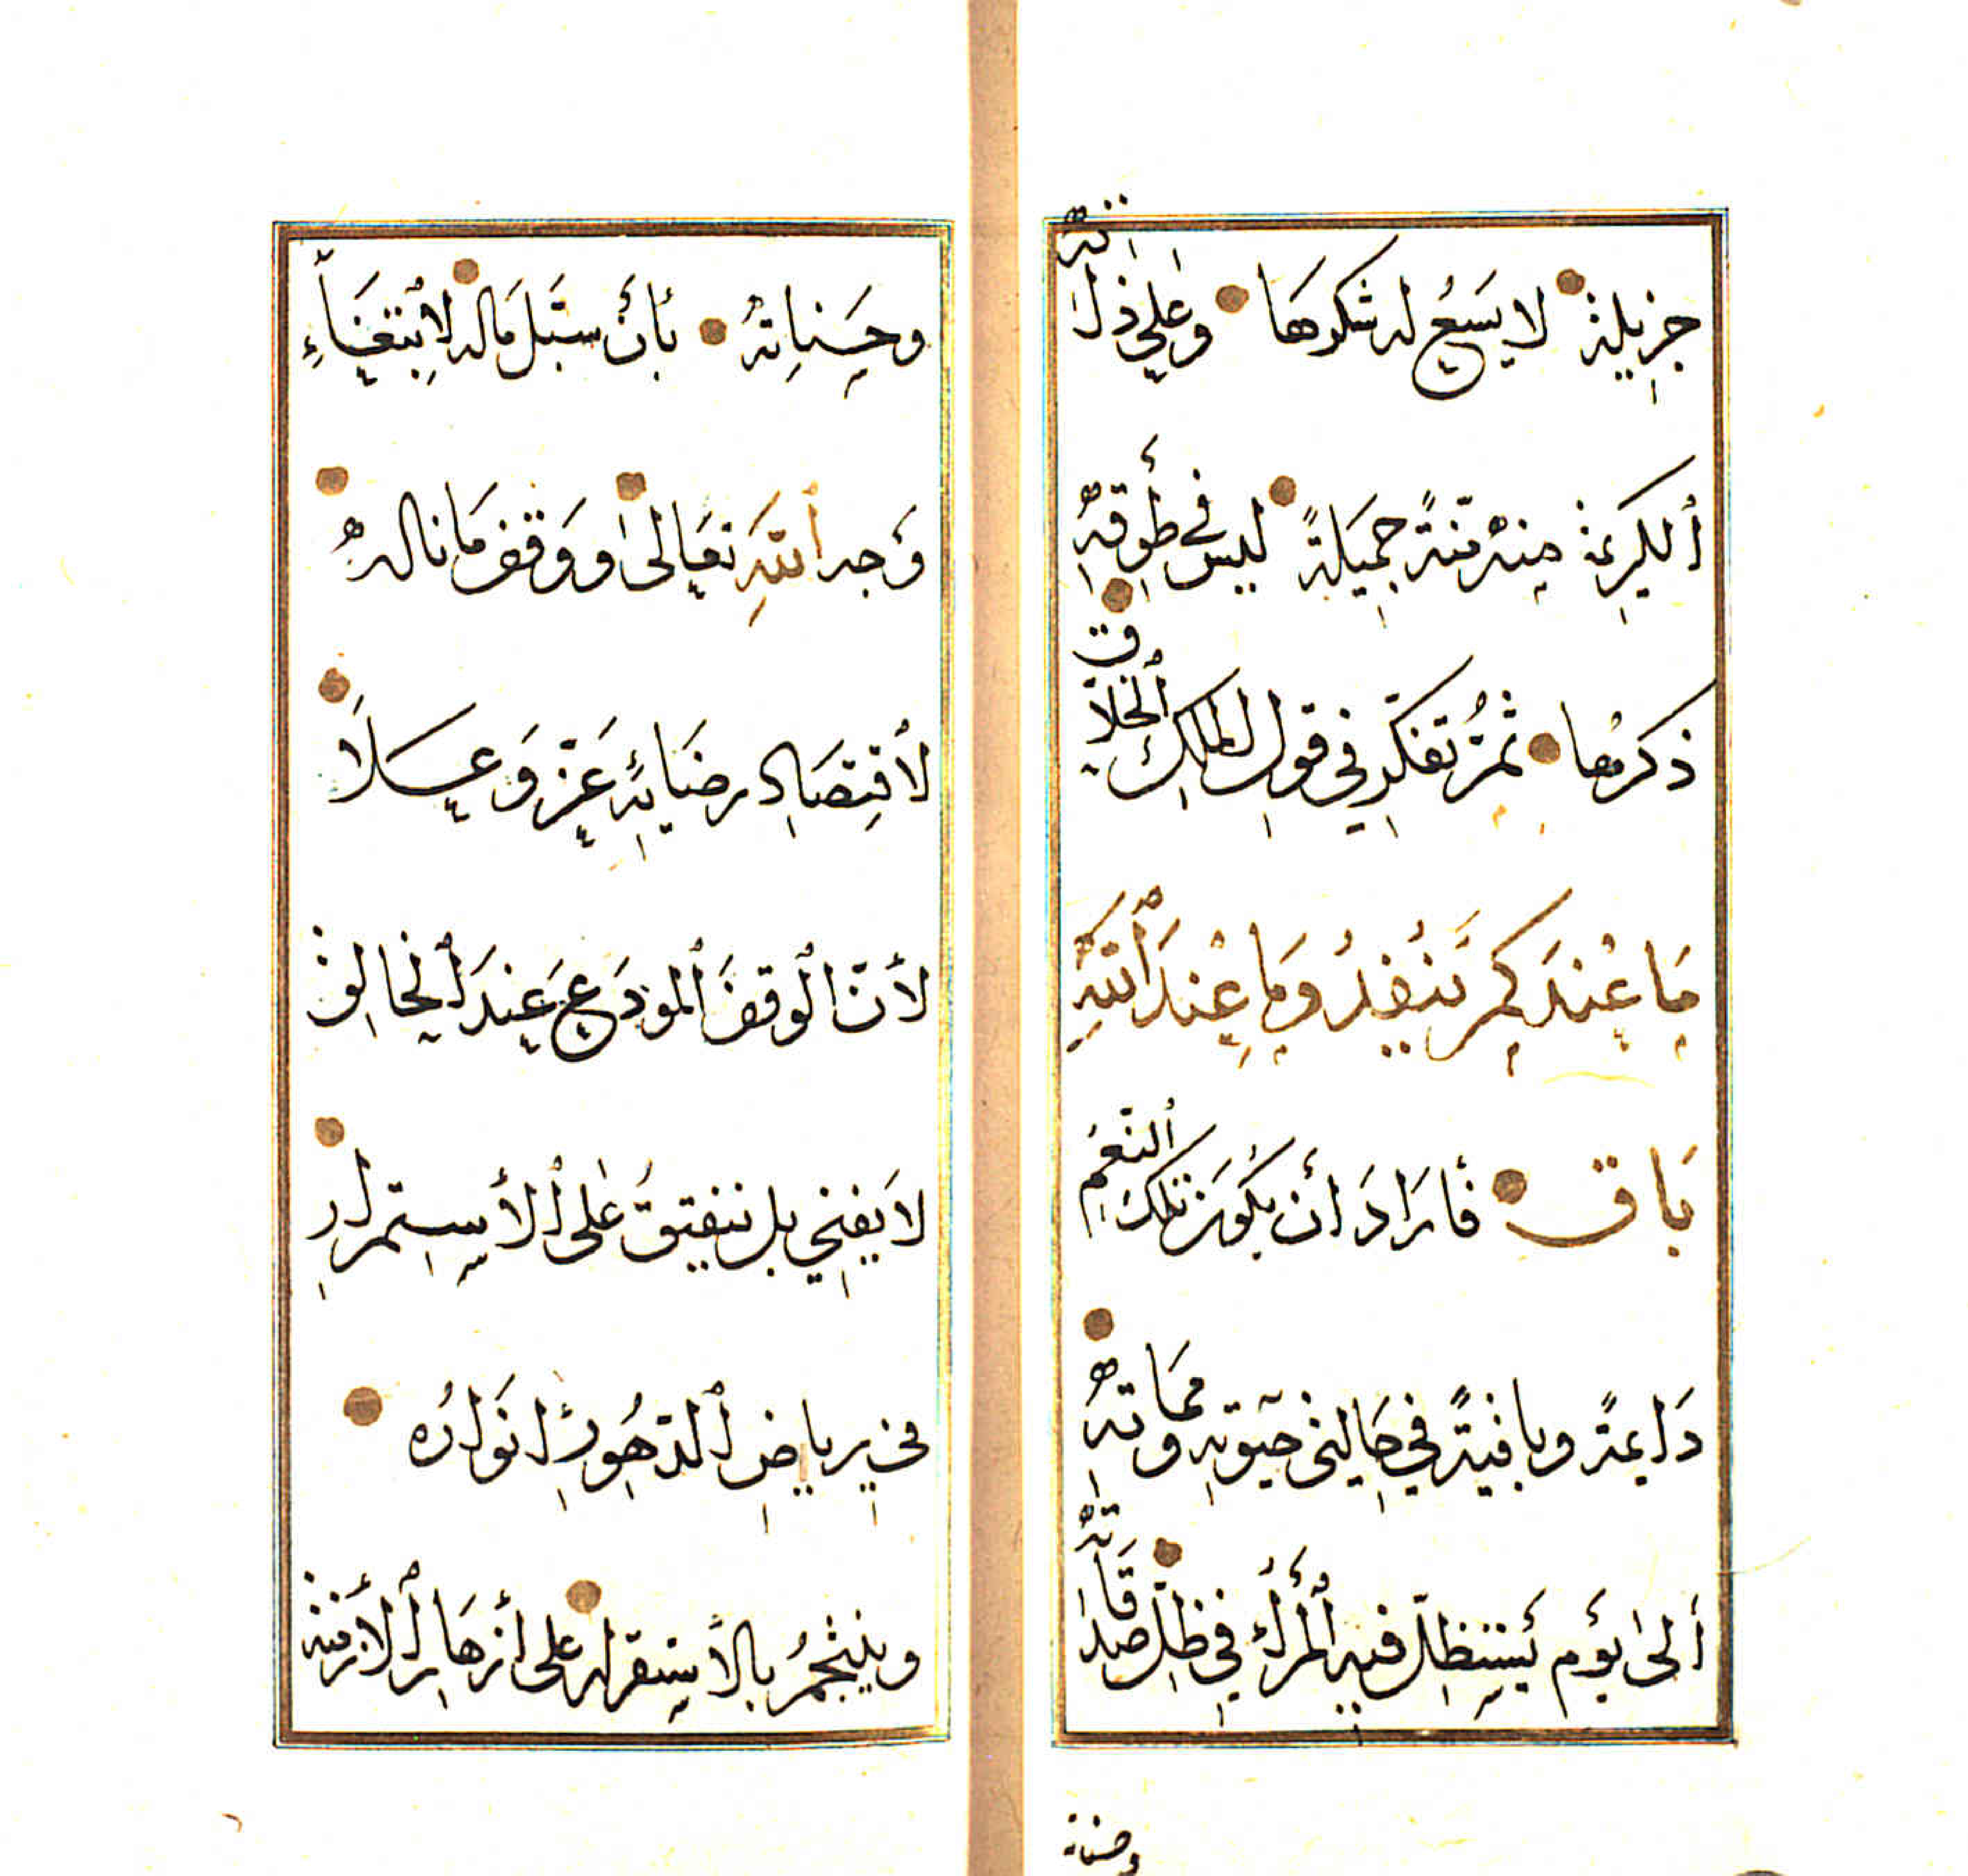 جزيلة لا يسع له شكرها وعلى ذاته
ألكريمة منه منّةً جميلةً ليس في طوقه
ذكرها ثمّ تفكّر في قول الملك الخلاّق
مَا عِنْدَكُمْ يَنْفَدُ وَمَا عِنْدَ ٱللّٰهِ
بَاقٍ فأرادَ أن يكون تلك ٱلنّعم
دايمةً وباقيةً في حاليتى حيوته ومماته
ألى يوم يستظلّ فيه ٱلمرأ في ظلّ صدقاته
وحسناته
وحسناته بأن سبّل ماله لابتغاء
وجه ٱللّٰه تعالى ووقف ما ناله
لاقتصاد رضائه عزّ وعلا
لأنّ الوقف ٱلمودع عند ٱلخالق
لا يفنى بل ينفتق على ٱلأستمرار
فى رياض ٱلدّهور انواره
وينثجم بالأستقرار على أزهار ٱلأزمنة